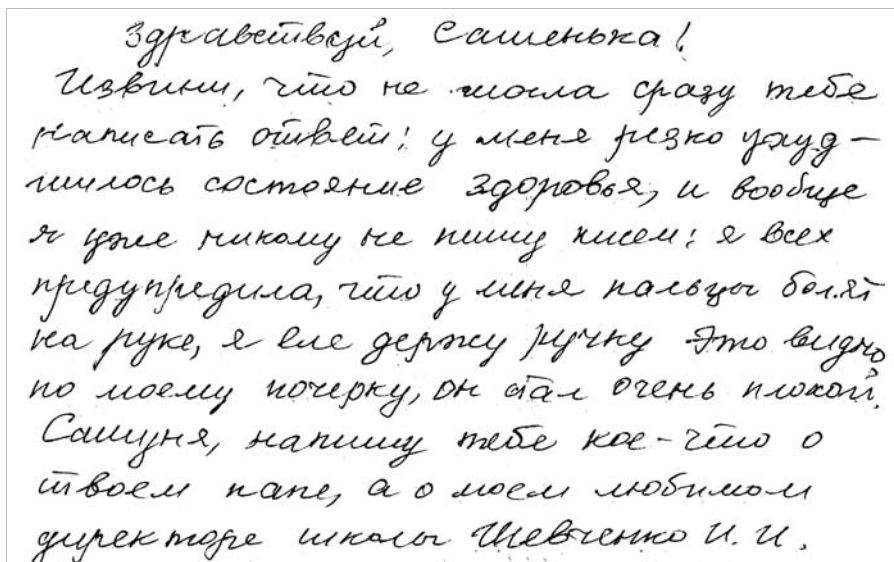 Здравствуй, Сашенька!
Извини, что не могла сразу тебе
написать ответ: у меня резко ухуд-
шилось состояние здоровья, и вообще
я уже никому не пишу писем: я всех
предупредила, что у меня пальцы болят
на руке, я еле держу ручку Это видно
по моему почерку, он стал очень плохой.
Сашуня, напишу тебе кое-что о
твоем папе, а о моем любимом
директоре школы Шевченко И. И.